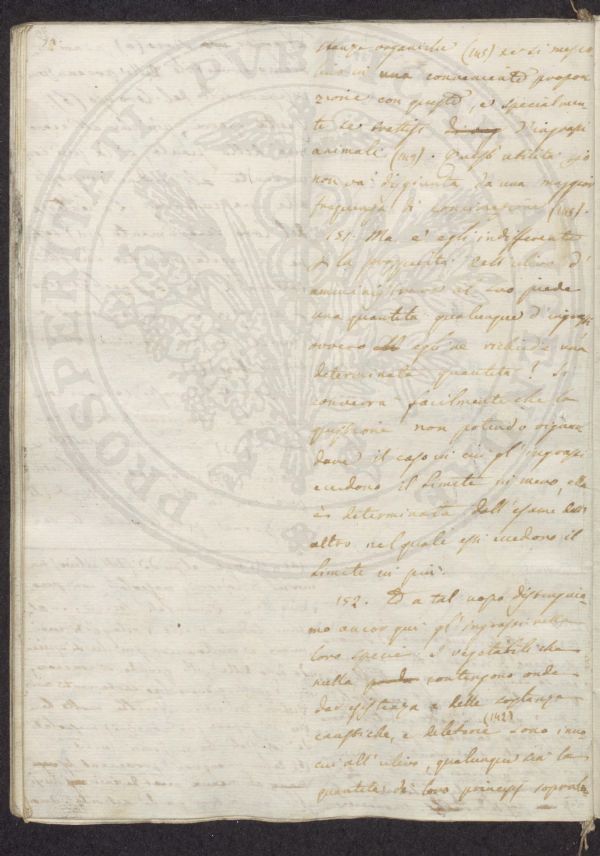 stanze organiche (145) se si mesco
lino in una conveniente propor
zione con queste, e specialmen
te se trattisi d'ingrassi
animali (149). Quest'utilità
non va disgiunta da una maggior
frequenza di concimazione (148).
151. Ma è egli indifferente
p la prosperità dell'ulivo d'
amministrare al suo piede
una quantità qualunque d'ingrassi
ovvero egli ne richiede una
determinata quantità? Si
converrà facilmente che la
questione non potendo riguar
dare il caso in cui gl'ingrassi
eccedono il limite in meno, ella
è determinata dall'esame dell'
altro nel quale essi eccedono il
limite in più.
152. D a tal uopo distinguia
mo ancor qui gl'ingrassi nella
loro specie. I vegetabili che
nulla contengono onde
dar esistenza a delle sostanze
caustiche, e deleterie (142) sono inno
cui all'ulivo, qualunque sia la
quantità de' loro principj
PROSPERITATI PUBLICAE